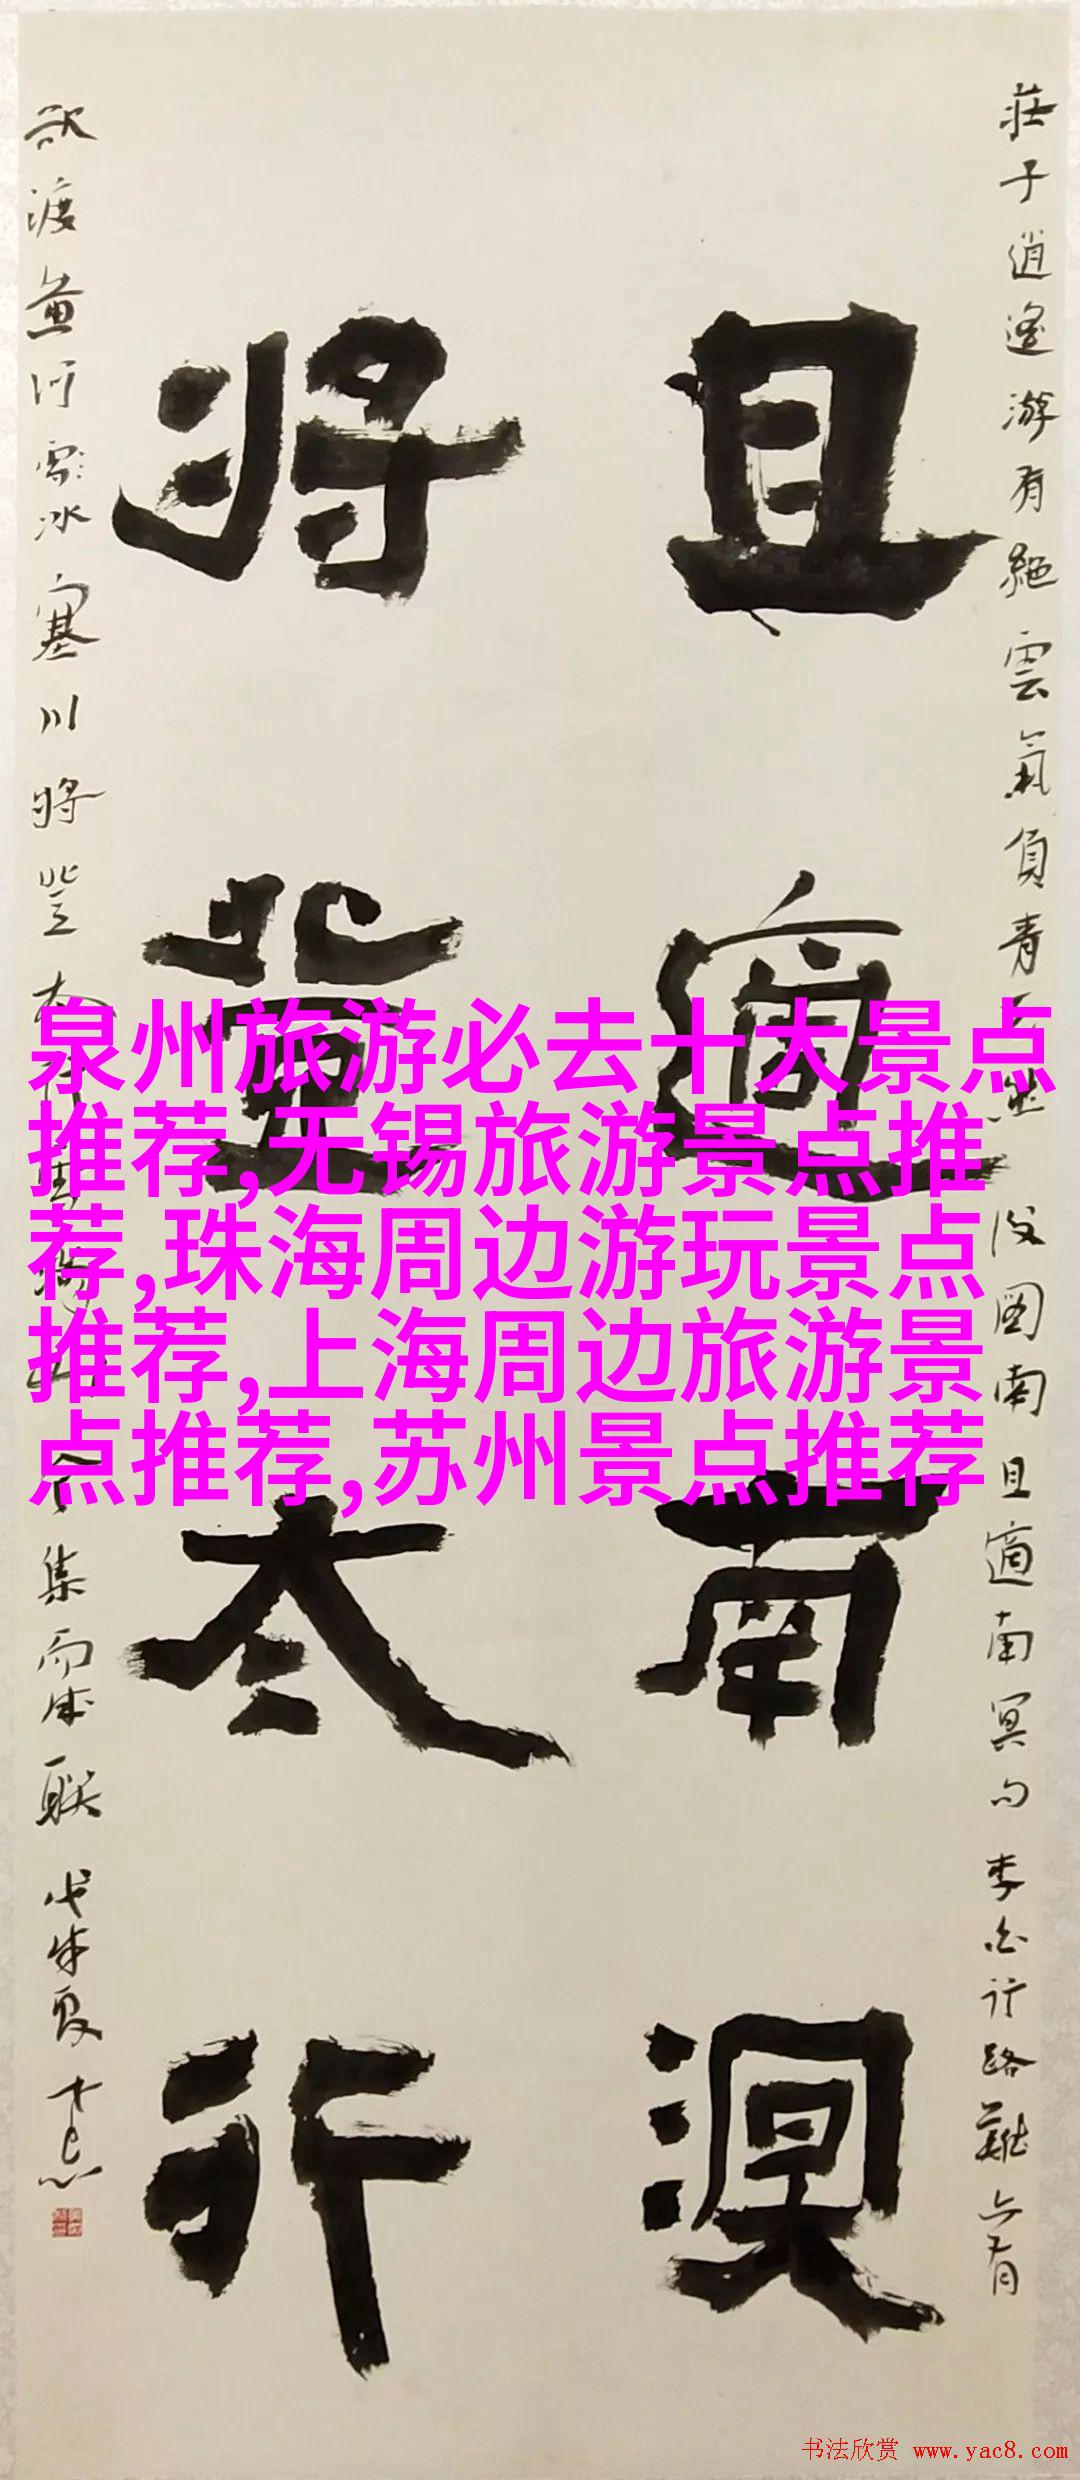 莊子逍遙游有絕雲氣負青天
後圖南且適南冥句李白行路難亦有
且適南溟
將登太行
欲渡黃河冰塞川將登太行雪
集而成聯戊戌夏
泉州旅游必去十大景点
推荐,无锡旅游景点推
荐,珠海周边游玩景点
推荐,上海周边旅游景
点推荐,苏州景点推荐
书法欣赏 www.yac8.com